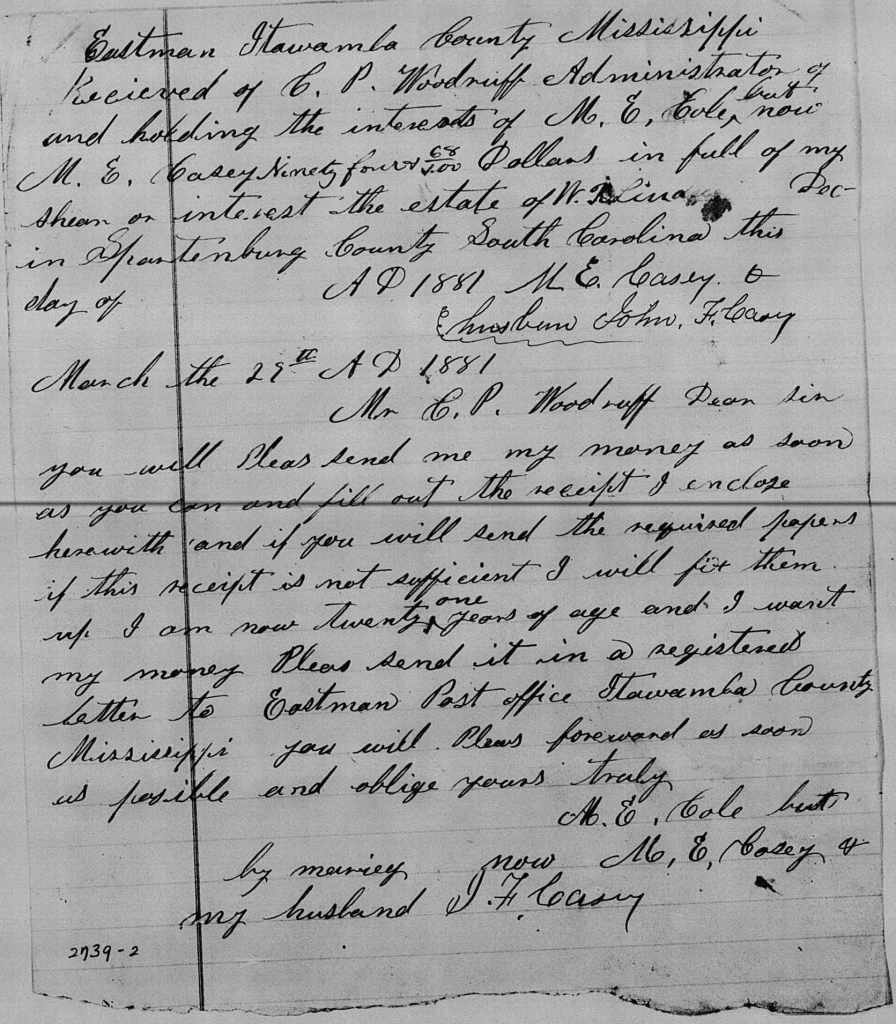 Eastman Itawamba County Mississippi
Recieved of C. P. Woodruff Administrator of
and holding the interests of M. E. Cole, but now
M. E. Casey Ninety four & 68/100 Dollars in full of my
shear or interest the estate of W. Dec-
in Spartenburg County South Carolina this
day of A D 1881 M E. Casey. &
husbun John. F. Casy
March the 29th A D 1881
Mr C. P. Woodruff Dear sir
you will Pleas send me my money as soon
as you can and fill out the receipt I enclose
herewith and if you will send the required papers
if this receipt is not sufficient I will fix them
up I am now twenty one years of age and I want
my money Pleas send it in a registered
letter to Eastman Post office Itawamba County
Mississippi you will Pleas foreward as soon
as posible and oblige yours truly
M. E. Cole but
by mariey now M, E, Casey &
my husband J. F. Casey
2739-2